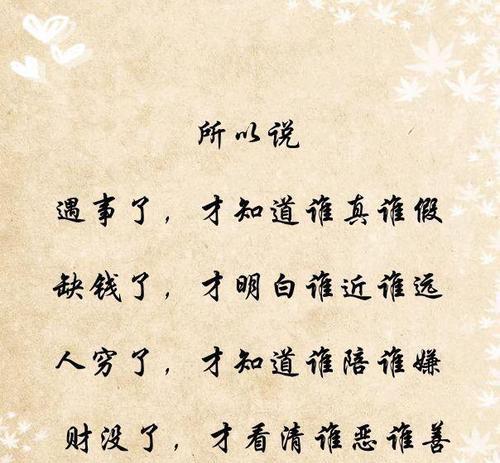 所以说
遇事了，才知道谁真谁假
缺钱了，才明白谁近谁远
人穷了，才知道谁陪谁嫌
财没了，才看清谁恶谁善